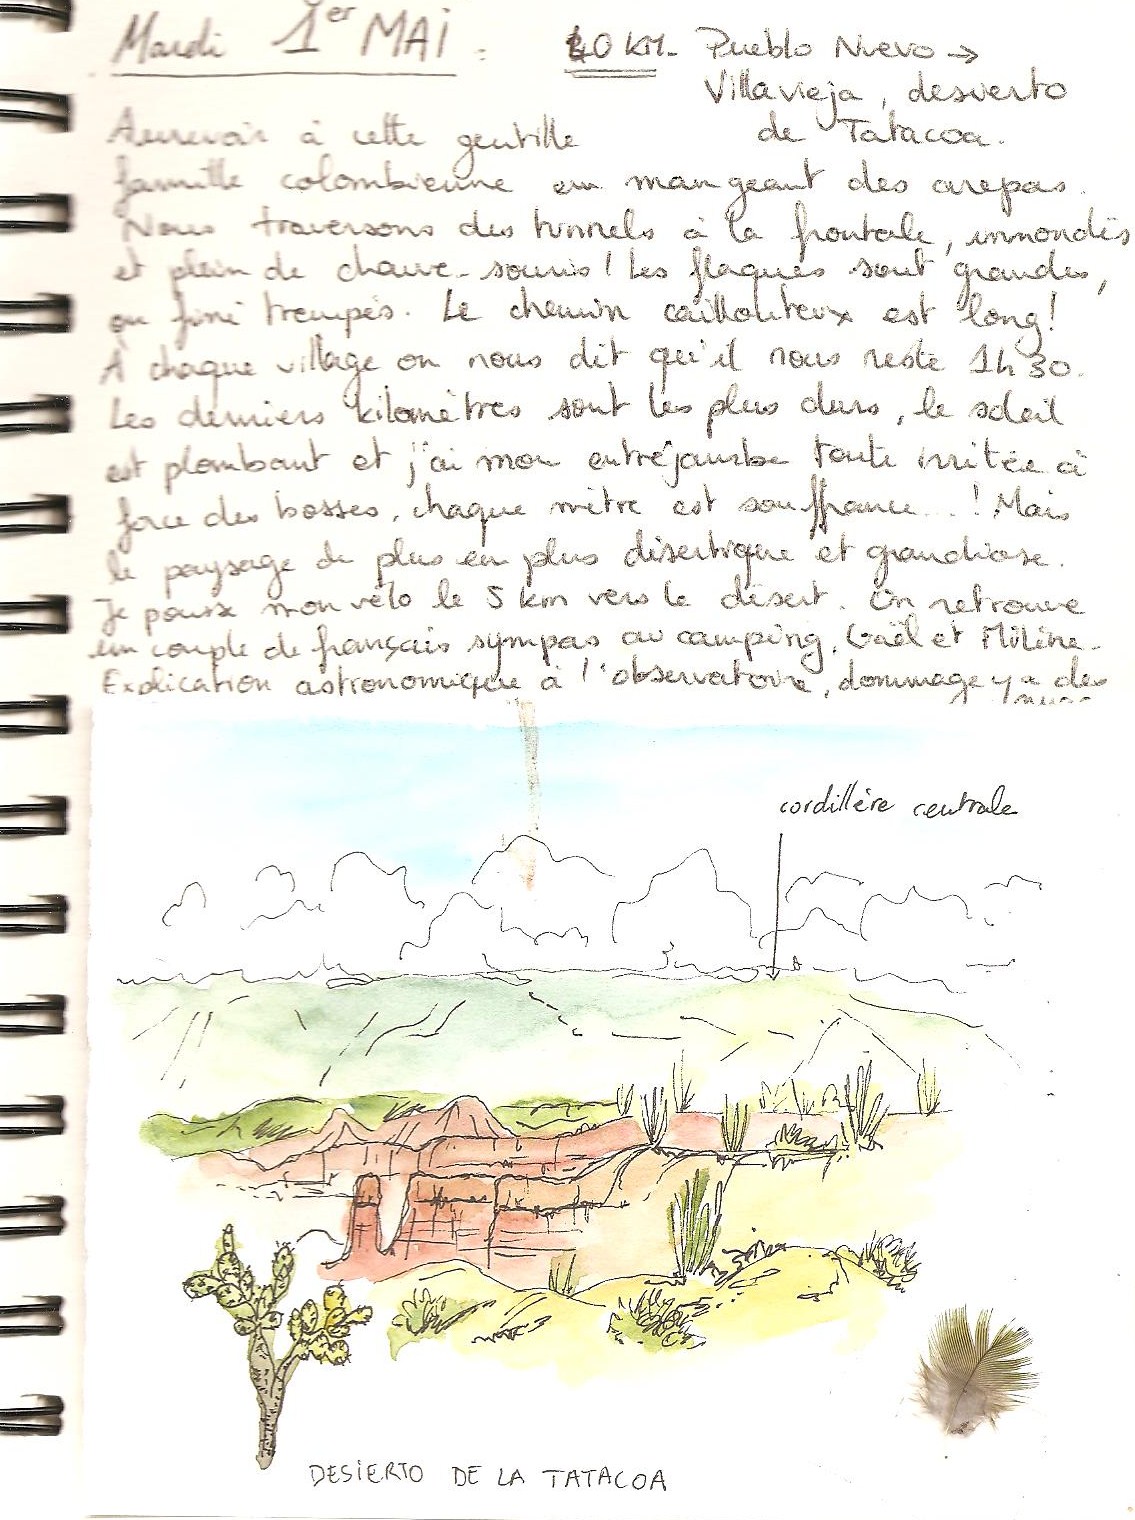 Mardi 1er MAI : 40 KM - Pueblo Nuevo →
Villavieja, desierto
de Tatacoa.
Aurevoir à cette gentille
famille colombienne en mangeant des arepas.
Nous traversons des tunnels à la frontale, inondés
et plein de chauve-souris ! Les flaques sont grandes,
on fini trempés. Le chemin caillouteux est long !
À chaque village on nous dit qu'il nous reste 1h30.
Les derniers kilomètres sont les plus durs, le soleil
est plombant et j'ai mon entrejambe toute irritée à
force des bosses, chaque mètre est souffrance...! Mais
le paysage de plus en plus désertique et grandiose.
Je pousse mon vélo le 5 km vers le désert. On retrouve
un couple de français sympas au camping, Gaël et Milène.
Explication astronomique à l'observatoire, dommage y a des
nuages
cordillère centrale
DESIERTO DE LA TATACOA